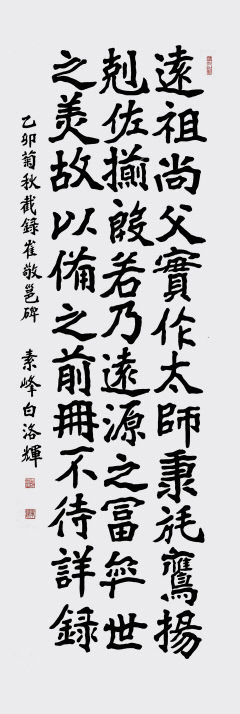 遠祖尚父實作太師秉旄鷹揚
剋佐揃殷若乃遠源之冨奕世
之美故以備之前冊不待詳錄
乙卯菊秋截錄崔敬邕碑 素峰白洛輝